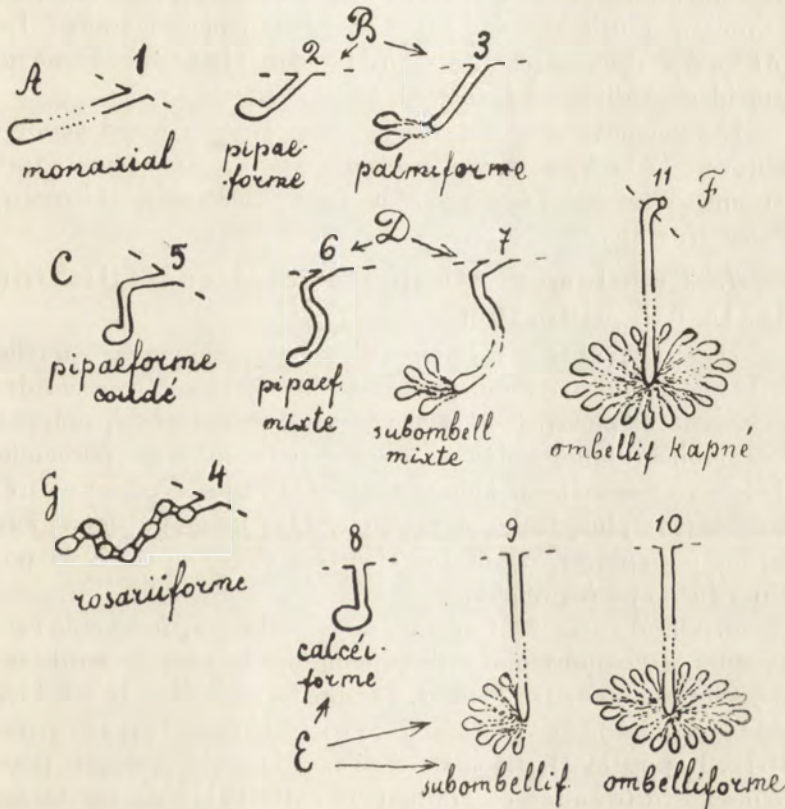 B
A 1 2 3
monaxial
pipae-
forme
palmiforme
11 F
C 5 6 D 7
pipaeforme
coudé
pipaef.
mixte
subombell
mixte
ombellif kapné
G 4
rosariiforme
8 9 10
calcéi-
forme
E
subombellif. ombelliforme